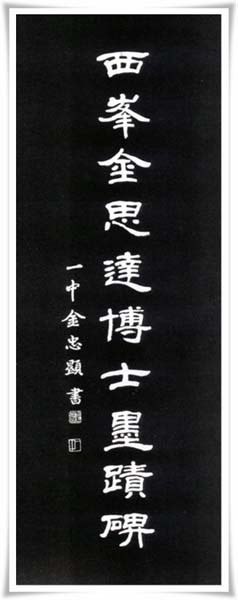 西峯金思達博士墨蹟碑
一中金忠顯書